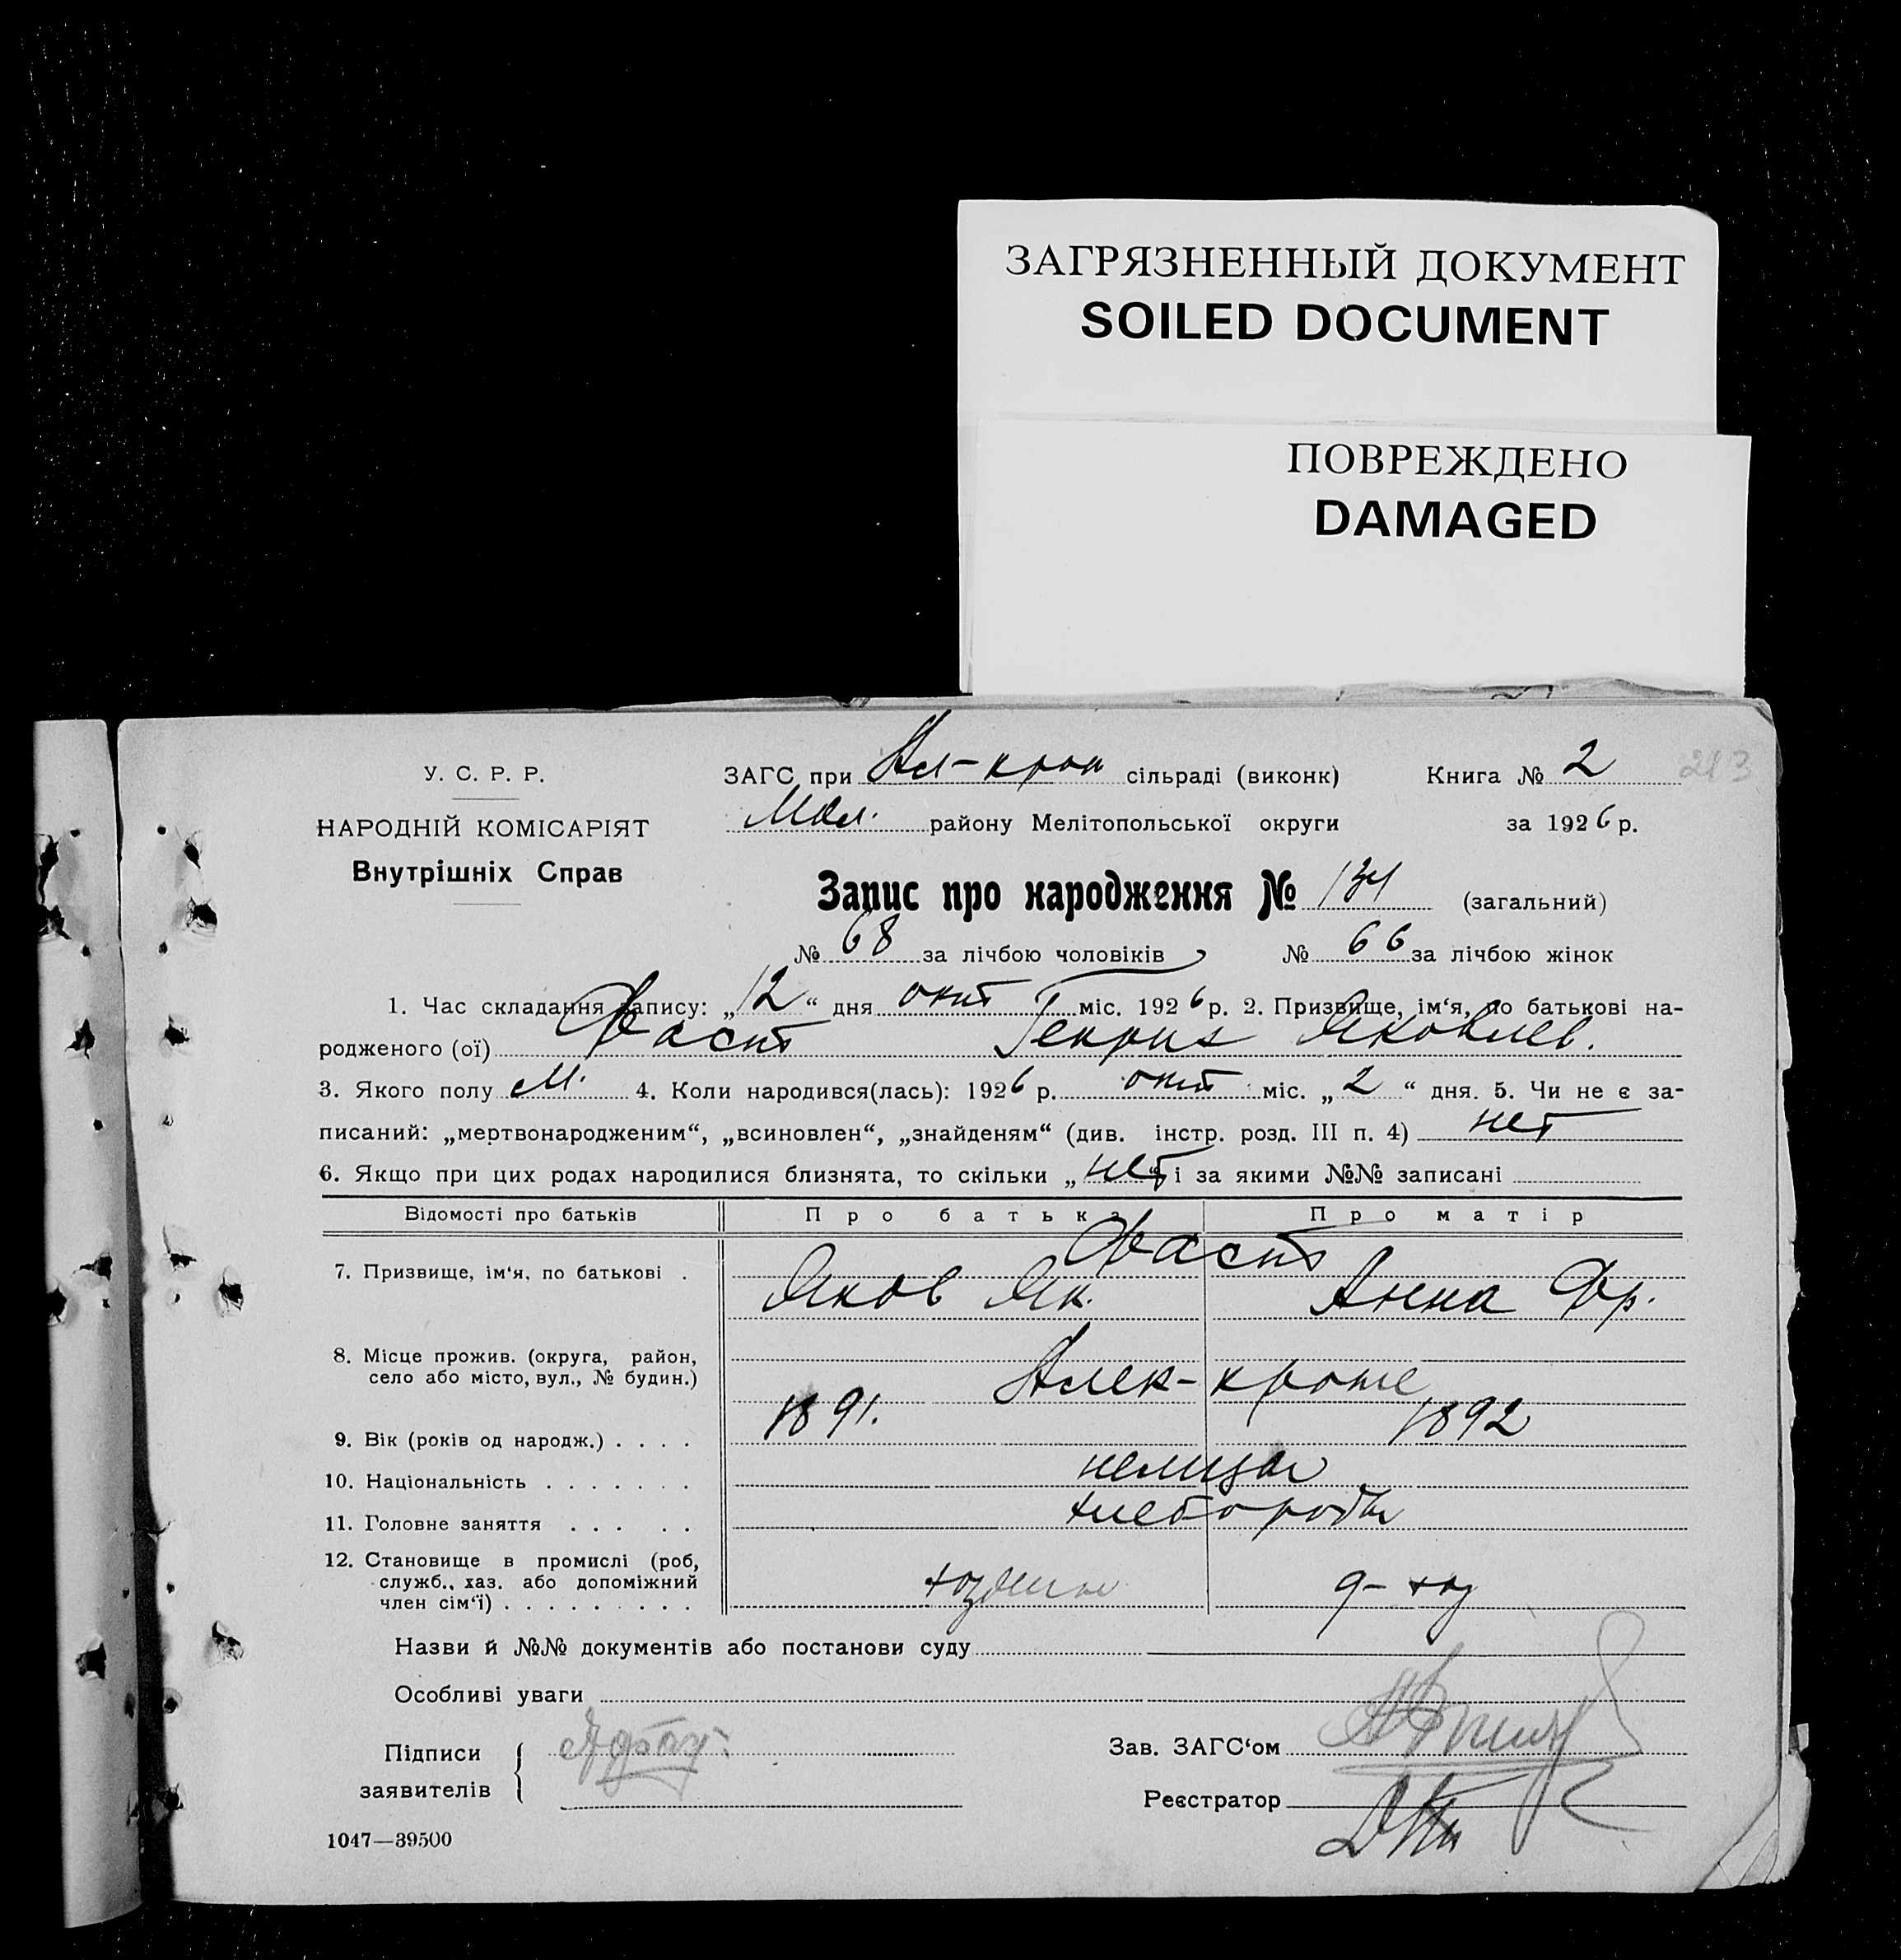 ЗАГРЯЗНЕННЫЙ ДОКУМЕНТ
SOILED DOCUMENT
ПОВРЕЖДЕНО
DAMAGED
У. С. Р. Р.
НАРОДНІЙ КОМІСАРІЯТ
Внутрішніх Справ
ЗАГС при Ал-крон сільраді (виконк) Книга № 2 213
Мол. району Мелітопольської округи за 1926 р.
Запис про народження № 134 (загальний)
№ 68 за лічбою чоловіків № 66 за лічбою жінок
1. Час складання запису: „12“ дня окт міс. 1926 р. 2. Призвище, ім‘я, по батькові на-
родженого (ої) Фаст Генрих Яковлев.
3. Якого полу м. 4. Коли народився(лась): 1926 р. окт міс. „2“ дня. 5. Чи не є за-
писаний: „мертвонародженим“, „всиновлен“, „знайденям“ (див. інстр. розд. III п. 4) нет
6. Якщо при цих родах народилися близнята, то скільки „нет“ і за якими №№ записані
Відомості про батьків Про батька Про матір
7. Призвище, ім‘я, по батькові . Фаст
Яков Як. Анна Фр.
8. Місце прожив. (округа, район,
село або місто, вул., № будин.) Алек-кроне
9. Вік (років од народж.) . . . . 1891. 1892
10. Національність . . . . . . . немцы
11. Головне заняття . . . . . хлеборобы
12. Становище в промислі (роб,
служб., хаз. або допоміжний
член сім‘ї) . . . . . . . . . хозяин д-хоз
Назви й №№ документів або постанови суду
Особливі уваги
Підписи
заявителів
Зав. ЗАГС‘ом
Реєстратор
1047—39500